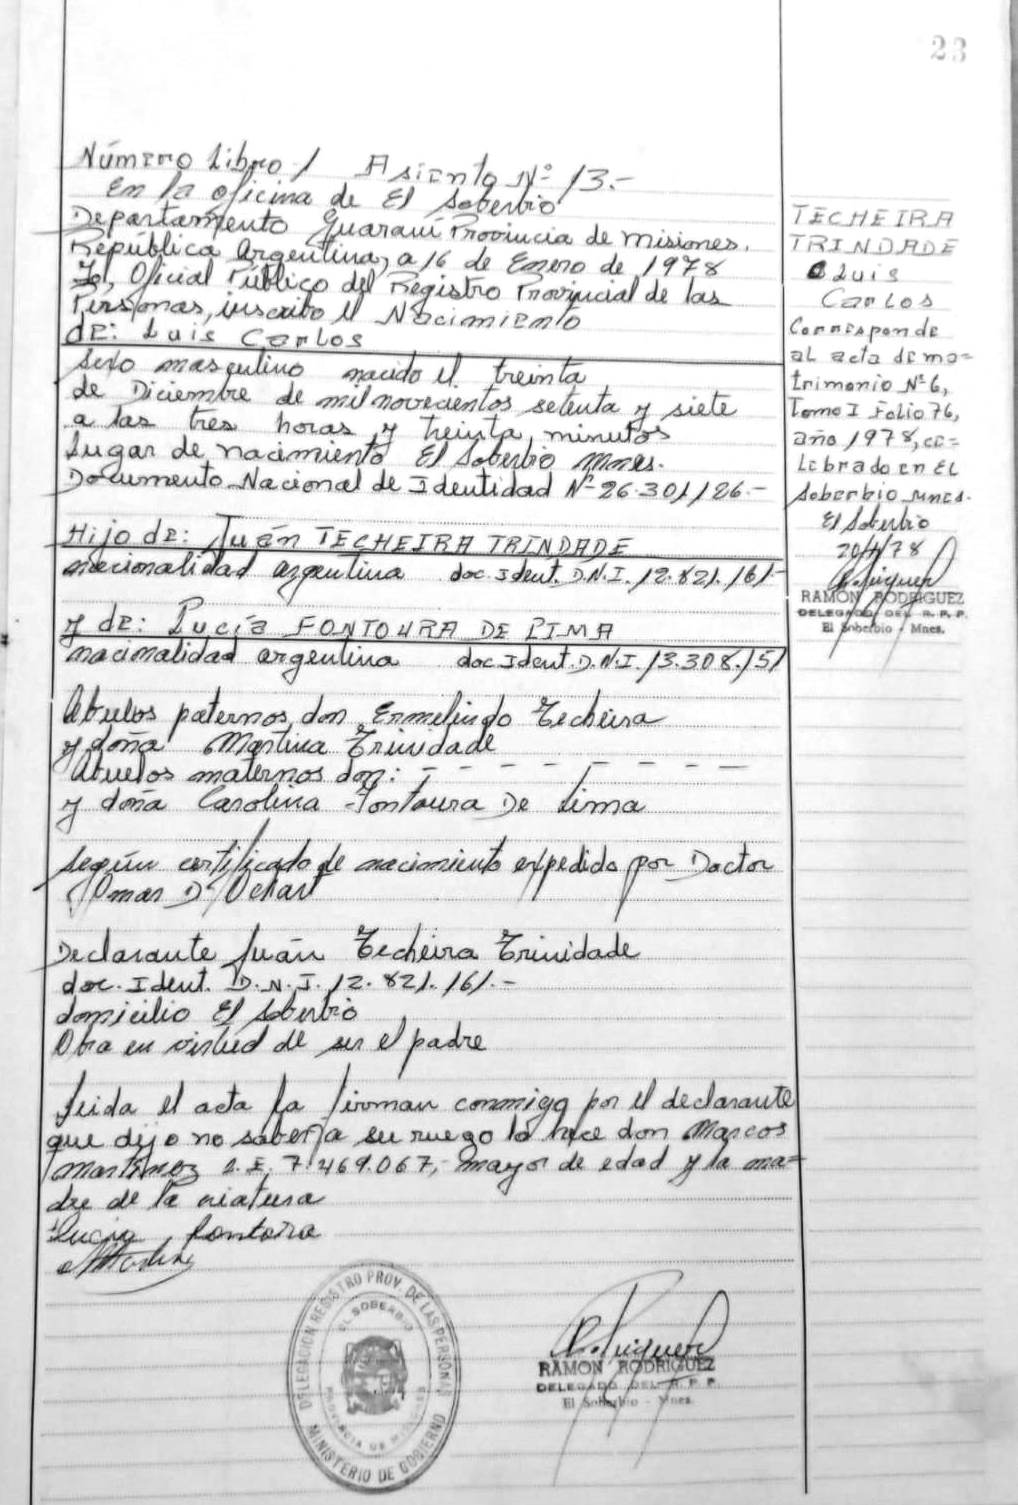 23
Número Libro 1 Asiento Nº 13.-
En la oficina de El Soberbio
Departamento Guaraní Provincia de Misiones.
República Argentina, a 16 de Enero de 1978
Yo, Oficial Público del Registro Provincial de las
Personas, inscribo el Nacimiento
DE: Luis Carlos
sexo masculino nacido el treinta
de Diciembre de mil novecientos setenta y siete
a las tres horas y treinta minutos
Lugar de nacimiento El Soberbio Mnes.
Documento Nacional de Identidad Nº 26.301.126.-
Hijo de: Juán TECHEIRA TRINDADE
nacionalidad argentina doc. Ident. D.N.I. 12.821.161.-
y de: Lucía FONTOURA DE LIMA
nacionalidad argentina doc. Ident. D.N.I. 13.308.151
Abuelos paternos don Ermelindo Techeira
y doña Martina Trinidade
Abuelos maternos don: - - - - - - - - -
y doña Carolina Fontoura De Lima
según certificado de nacimiento expedido por Doctor
Omar D.
Declarante Juán Techeira Trinidade
doc. Ident. D.N.I. 12.821.161.-
domicilio El Soberbio
Obra en virtud de ser el padre
Leida el acta la firman conmigo por el declarante
que dijo no saber a su ruego lo hace don Marcos
Martinez L.E. 7.469.067,- mayor de edad y la ma=
dre de la criatura
Lucia fontora
DELEGACION REGISTRO PROV. DE LAS PERSONAS
EL SOBERBIO
PROVINCIA DE MISIONES
MINISTERIO DE GOBIERNO
RAMON RODRIGUEZ
DELEGADO DEL R. P. P.
El Soberbio - Mnes.
TECHEIRA
TRINDADE
Luis
Carlos
Corresponde
al acta de ma=
trimonio Nº 6,
Tomo I Folio 76,
año 1978, ce=
lebrado en El
Soberbio Mnes.
El Soberbio
20/4/78
RAMON RODRIGUEZ
DELEGADO DEL R. P. P.
El Soberbio - Mnes.